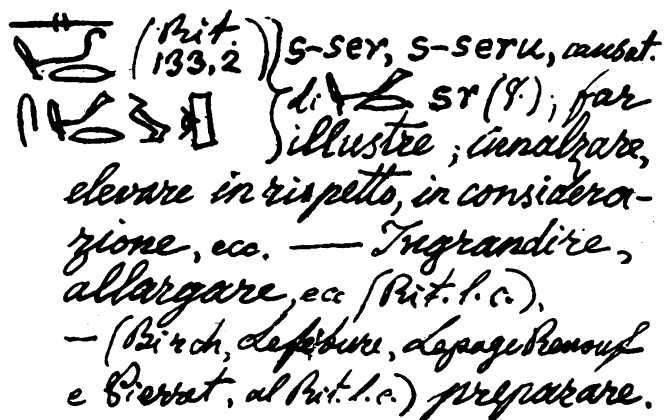 (Rit. 133,2) s-ser, s-seru, causat.
di sr (q.); far
illustre; innalzare,
elevare in rispetto, in considera-
zione, ecc. — Ingrandire,
allargare, ecc (Rit. l. c.).
— (Birch, Lefébure, Lepage Renouf
e Pierret, al Rit. l. c.) preparare.